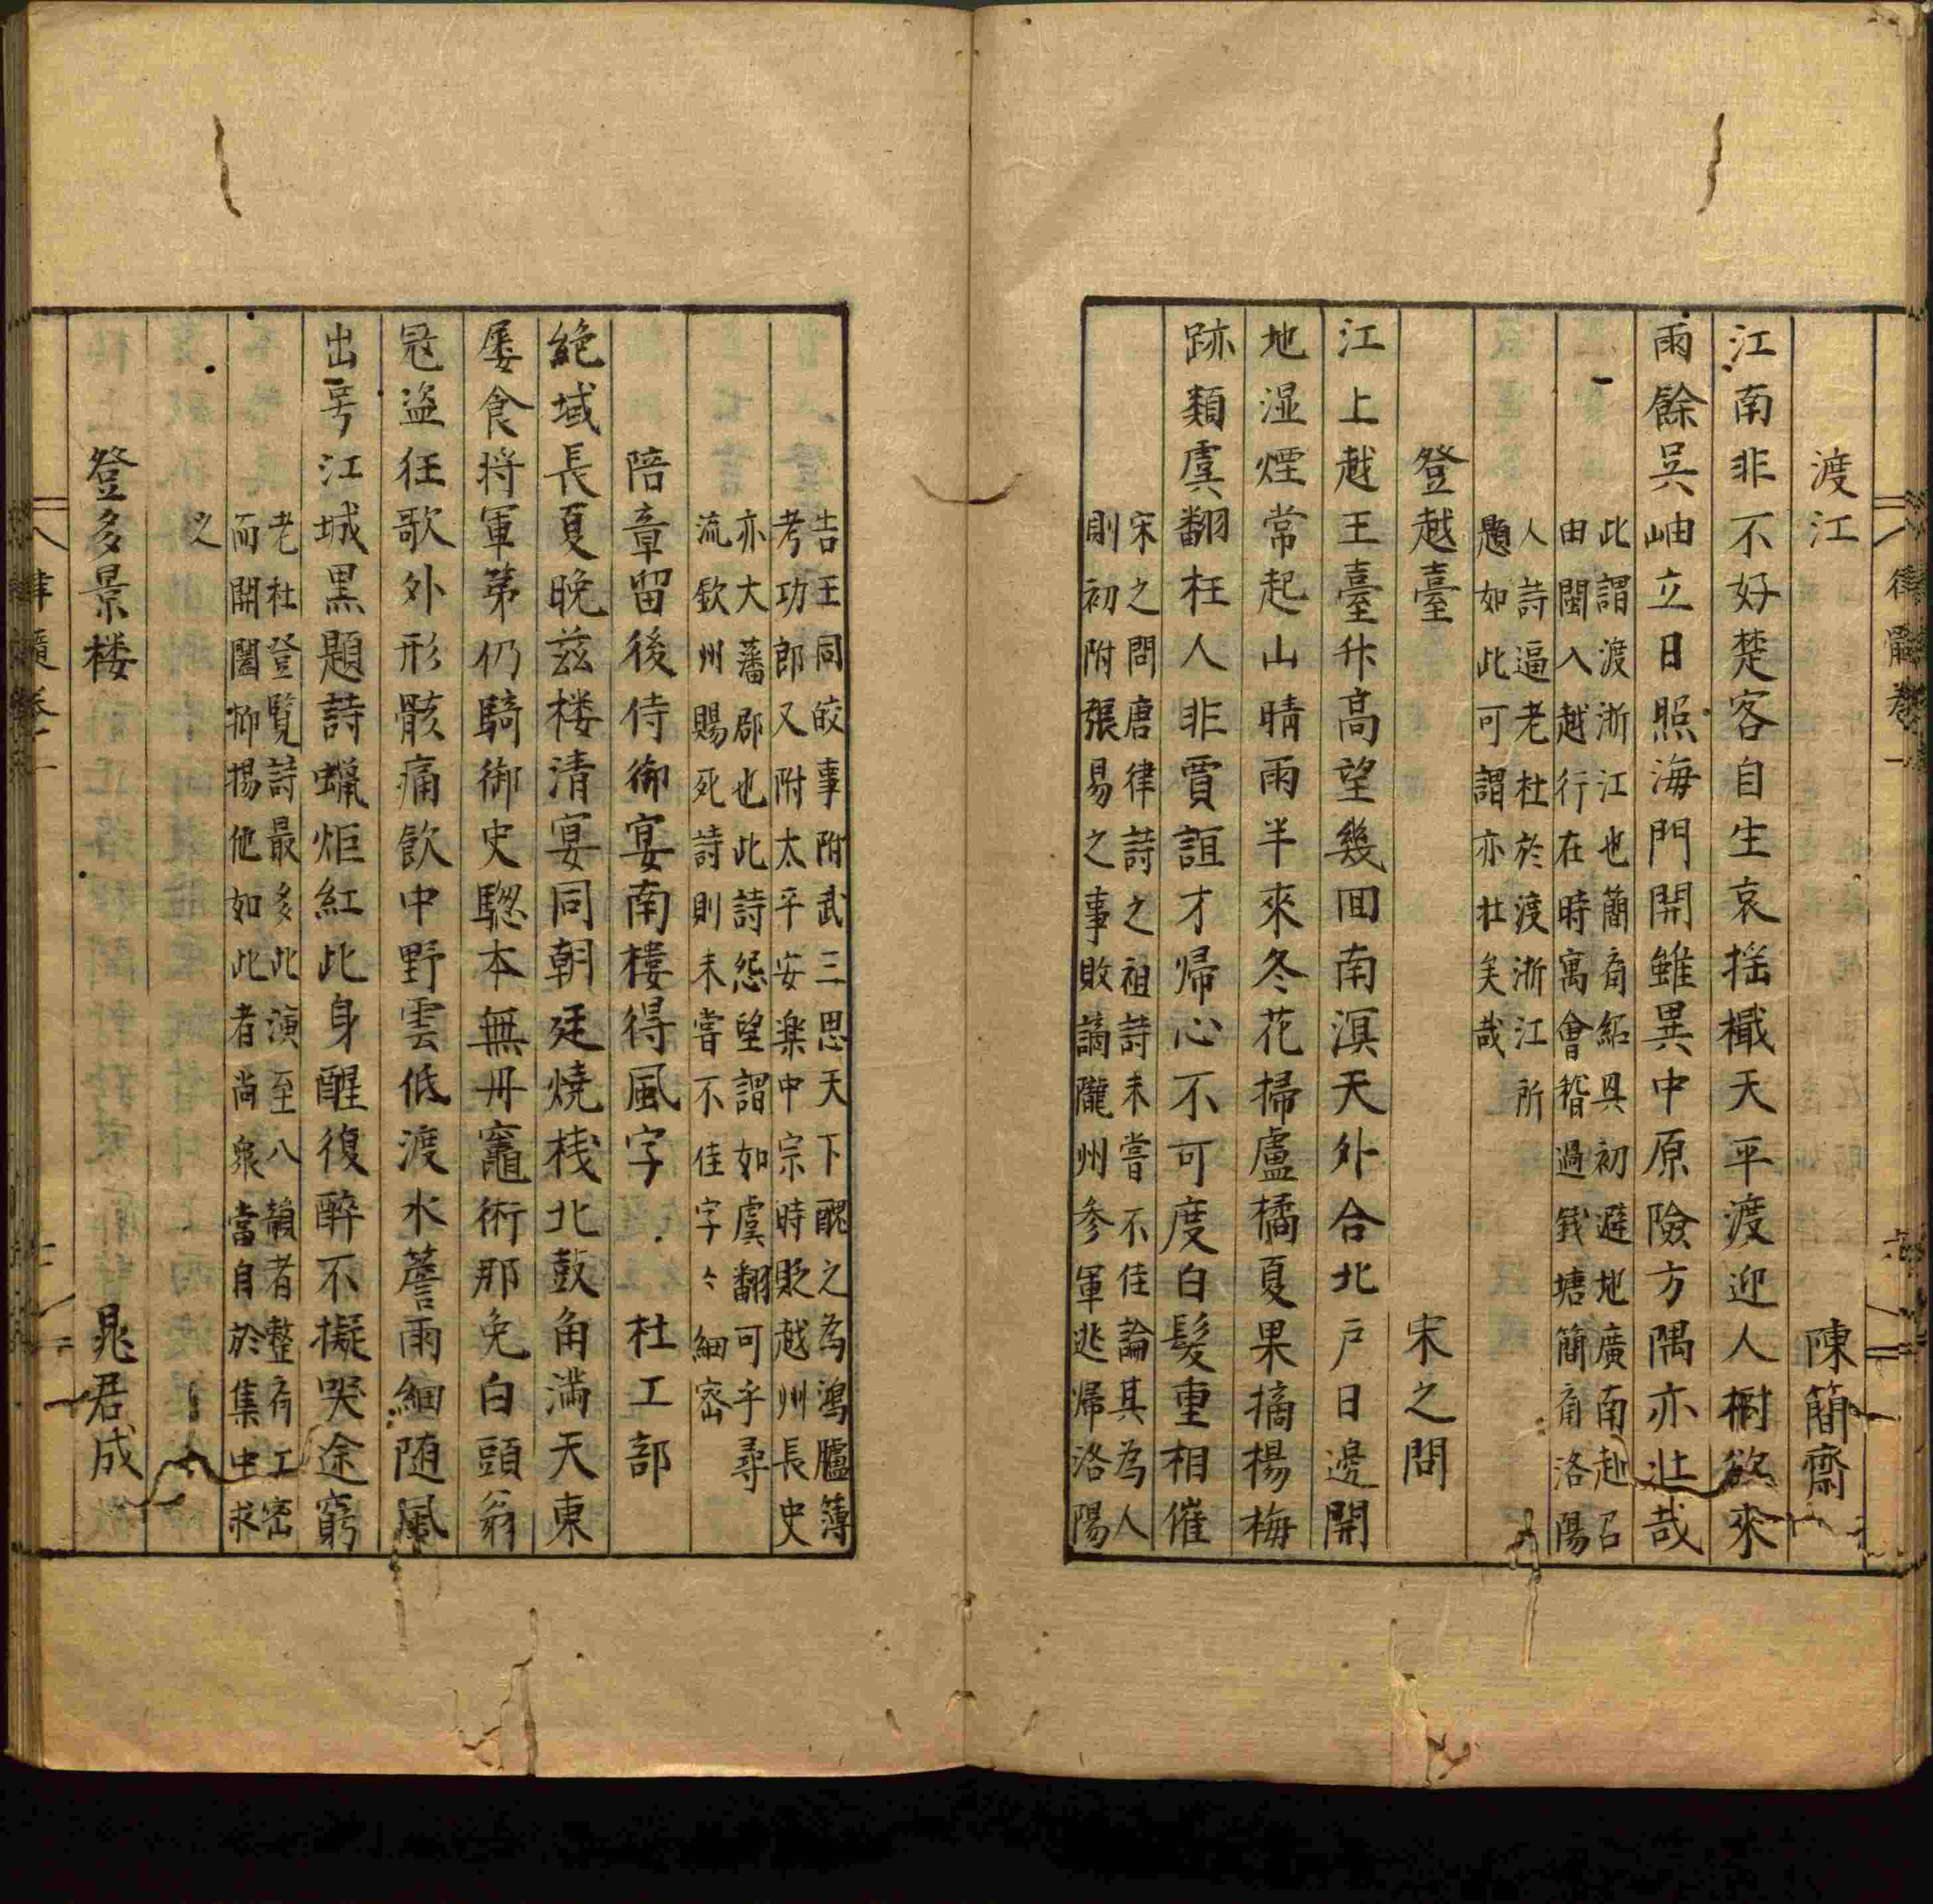 律髓卷一
渡江 陳簡齋
江南非不好楚客自生哀揺檝天平渡迎人樹欲來
雨餘呉岫立日照海門開雖異中原險方隅亦壮哉
此謂渡浙江也簡斎紹興初避地廣南赴召
由閩入越行在時寓會稽過錢塘簡斎洛陽
人詩逼老杜於渡浙江所
題如此可謂亦壮矣哉
登越臺 宋之問
江上越王臺升高望幾回南溟天外合北戸日邊開
地湿煙常起山晴雨半來冬花掃盧橘夏果摘楊梅
跡類虞翻枉人非賈誼才帰心不可度白髮重相催
宋之問唐律詩之祖詩未嘗不佳論其為人
則初附張易之事敗謫隴州参軍逃帰洛陽
告王同皎事附武三思天下醜之為鴻臚簿
考功郎又附太平安楽中宗時貶越州長史
亦大藩郡也此詩怨望謂如虞翻可乎尋
流欽州賜死詩則未嘗不佳字々細密
陪章留後侍御宴南樓得風字 杜工部
絶域長夏晩茲楼清宴同朝廷燒桟北鼓角満天東
屡食将軍第仍騎御史驄本無丹竈術那免白頭翁
冦盗狂歌外形骸痛飲中野雲低渡水簷雨細随風
出号江城黒題詩蝋炬紅此身醒復醉不擬哭途窮
老杜登覧詩最多此演至八韻者整斉工密
而開闔抑揚他如此者尚衆當自於集中求
之
登多景楼 晁君成
律髓卷一